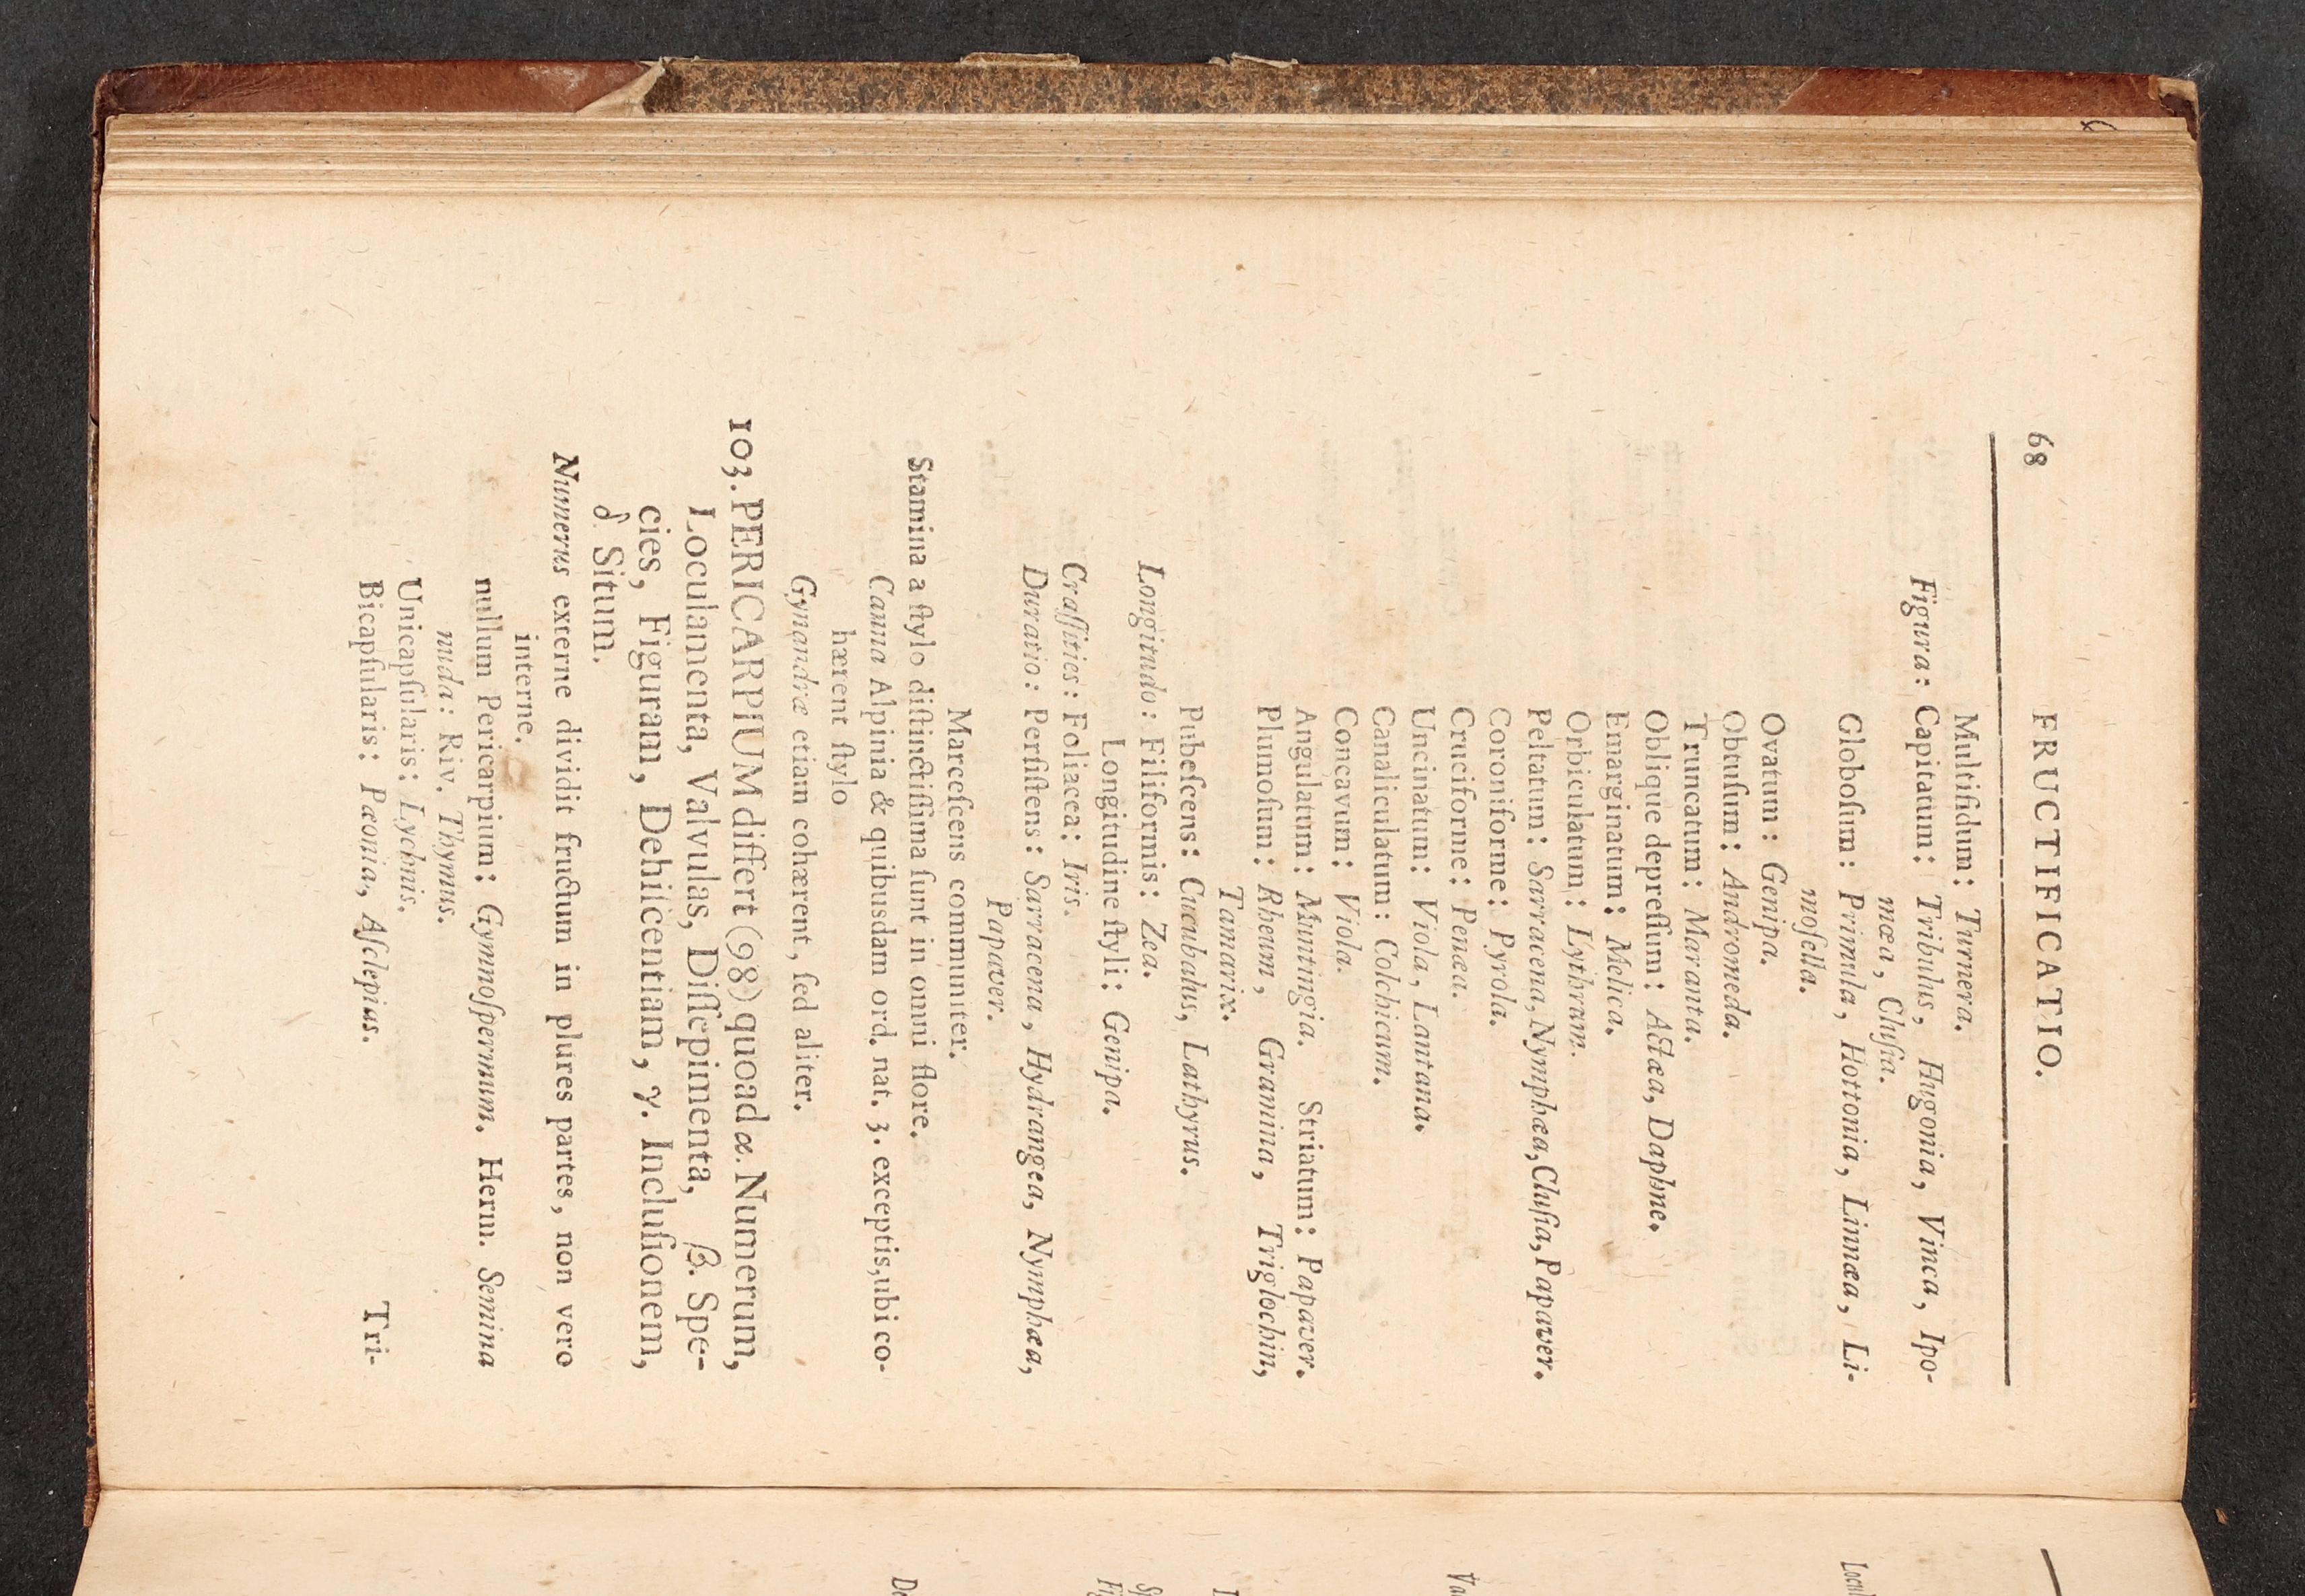 68 FRUCTIFICATIO.
Multifidum: Turnera.
Figura: Capitatum: Tribulus, Hugonia, Vinca, Ipo-
mœa, Cluſia.
Globoſum: Primula, Hottonia, Linnæa, Li-
moſella.
Ovatum: Genipa.
Obtuſum: Andromeda.
Truncatum: Maranta.
Oblique depreſſum: Actæa, Daphne.
Emarginatum: Melica.
Orbiculatum: Lythram.
Peltatum: Sarracena, Nymphæa, Cluſia, Papaver.
Coroniforme: Pyrola.
Cruciforme: Penæa.
Uncinatum: Viola, Lantana.
Canaliculatum: Colchicum.
Concavum: Viola.
Angulatum: Muntingia. Striatum: Papaver.
Plumoſum: Rheum, Gramina, Triglochin,
Tamarix.
Pubeſcens: Cucubalus, Lathyrus.
Longitudo: Filiformis: Zea.
Longitudine ſtyli: Genipa.
Craſſities: Foliacea: Iris.
Duratio: Perſiſtens: Sarracena, Hydrangea, Nymphæa,
Papaver.
Marceſcens communiter.
Stamina a ſtylo diſtinctiſſima ſunt in omni flore.
Canna Alpinia & quibusdam ord. nat. 3. exceptis, ubi co-
hærent ſtylo
Gynandriæ etiam cohærent, ſed aliter.
103. PERICARPIUM differt (98) quoad α. Numerum,
Loculamenta, Valvulas, Diſſepimenta, β. Spe-
cies, Figuram, Dehiſcentiam, γ. Incluſionem,
δ. Situm.
Numerus externe dividit fructum in plures partes, non vero
interne.
nullum Pericarpium: Gymnoſpermum. Herm. Semina
nuda: Riv. Thymus.
Unicapſularis: Lychnis.
Bicapſularis: Pæonia, Aſclepias.
Tri-